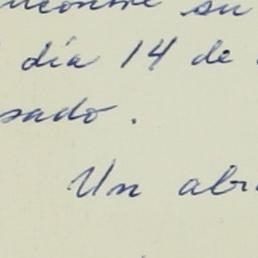 su
día 14 de
sado.
Un abr